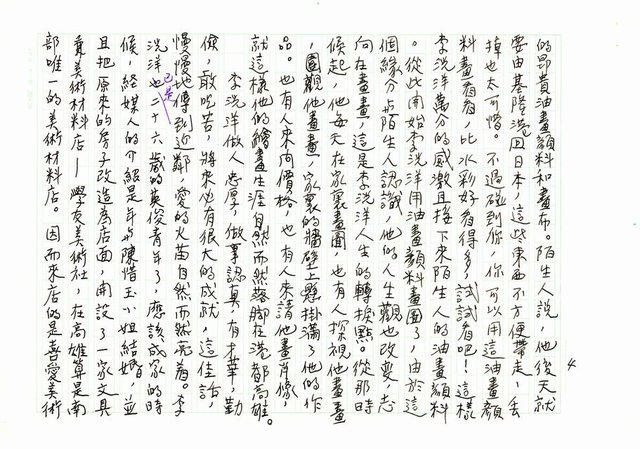 4
的昂貴油畫顏料和畫布。陌生人說，他後天就
要由基隆港回日本，這些東西不方便帶走，丟
掉也太可惜。不過碰到你，你可以用這油畫顏
料畫看看，比水彩好看得多，試試看吧！這樣
李洗洋萬分的感激且接下來陌生人的油畫顏料
。從此開始李洗洋用油畫顏料畫圖了，由於這
個緣分與陌生人認識，他的人生觀也改變，志
向在畫畫，這是李洗洋人生的轉捩點。從那時
候起，他每天在家裏畫圖，也有人探視他畫畫
，圍觀他畫畫，家裏的牆壁上懸掛滿了他的作
品。也有人來问價格，也有人來請他畫肖像，
就這樣他的繪畫生涯自然而然落脚在港都高雄。
李洗洋做人忠厚，做事認真，有才華，勤
儉，敢吃苦，將來必有很大的成就，這佳話，
慢慢地傳到近鄰，愛的火苗自然而然亮着。李
洗洋也已是二十六歲的英俊青年了，應該成家的時
候，經媒人的介紹是年與陳惜玉小姐結婚，並
且把原來的房子改造為店面，開設了一家文具
兼美術材料店—學友美術社，在高雄算是南
部唯一的美術材料店。因而來店的是喜愛美術